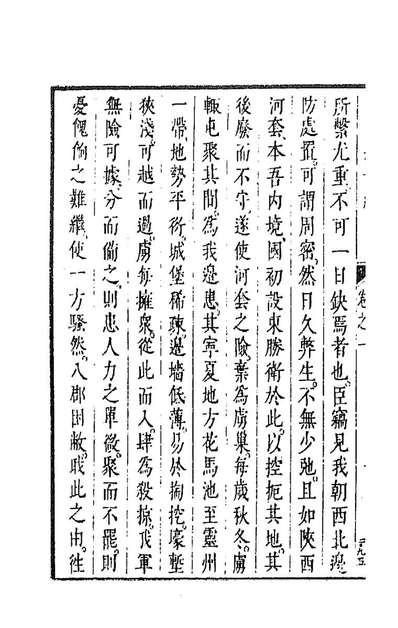 所繫尤重不可一日缺焉者也臣竊見我朝西北邊
防處置可謂周密然日久弊生不無少弛且如陝西
河套本吾内境國初設東勝衛於此以控扼其地其
後廢而不守遂使河套之險棄為虜巢每歲秋冬虜
輙屯聚其間為我邊患其寧夏地方花馬池至靈州
一帶地勢平衍城堡稀疎邊墻低薄易於掏挖壕塹
狹淺可越而過虜每擁衆從此而入肆為殺掠我軍
無險可據分而備之則患人力之單微聚而不罷則
憂餽餉之難繼使一方騷然八郡困敝職此之由徃
卷之一